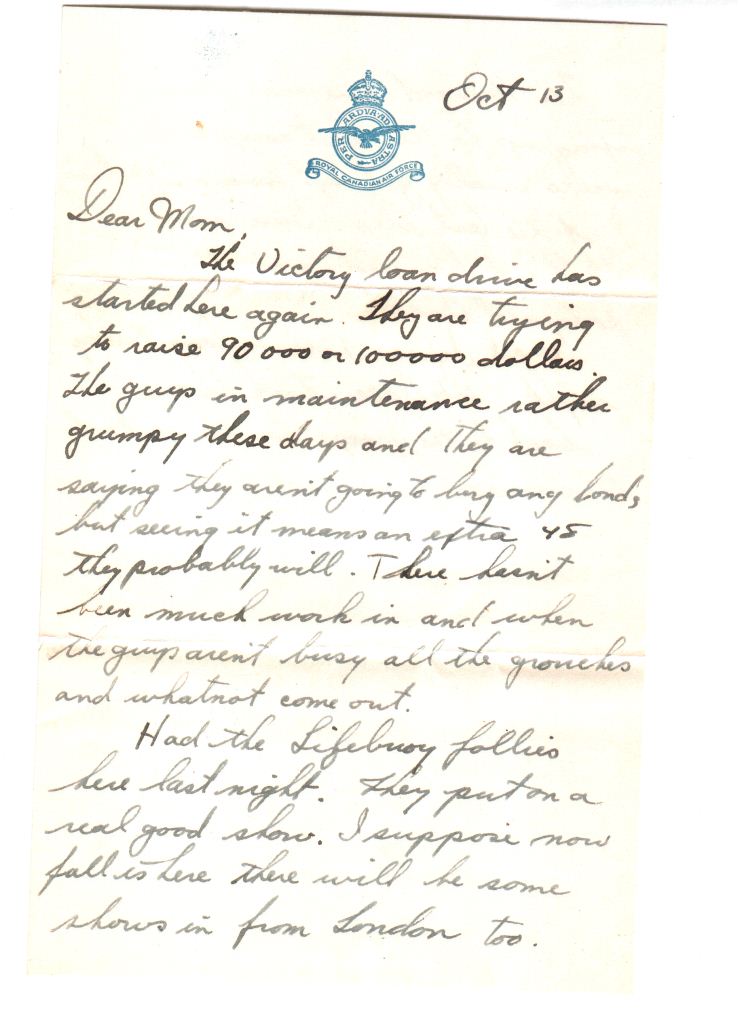 Oct 13
PER ARDVA AD ASTRA
ROYAL CANADIAN AIR FORCE
Dear Mom,
The Victory loan drive has
started here again. They are trying
to raise 90 000 or 100000 dollars.
The guys in maintenance rather
grumpy these days and they are
saying they aren't going to buy any bonds
but seeing it means an extra 48
they probably will. There hasn't
been much work in and when
the guys aren't busy all the grouches
and whatnot come out.
Had the Lifebuoy follies
here last night. They put on a
real good show. I suppose now
fall is here there will be some
shows in from London too.